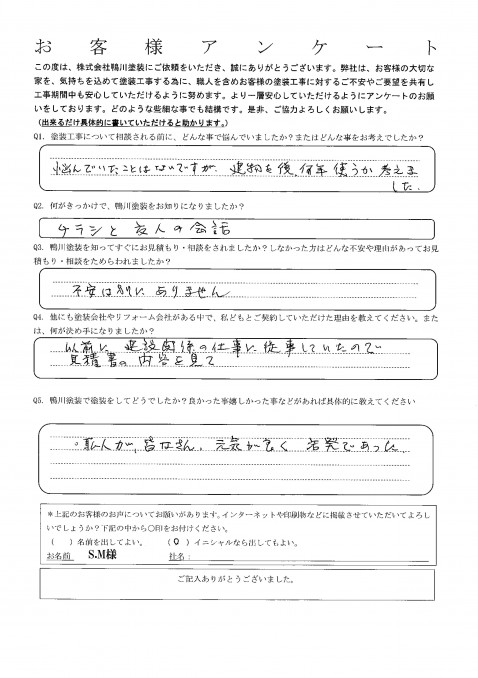 お客様アンケート
この度は、株式会社鴨川塗装にご依頼をいただき、誠にありがとうございます。弊社は、お客様の大切な
家を、気持ちを込めて塗装工事する為に、職人を含めお客様の塗装工事に対するご不安やご要望を共有し
工事期間中も安心していただけるように努めます。より一層安心していただけるようにアンケートのお願
いをしております。どのような些細な事でも結構です。是非、ご協力よろしくお願いします。
（出来るだけ具体的に書いていただけると助かります。）
Q1. 塗装工事について相談される前に、どんな事で悩んでいましたか？またはどんな事をお考えでしたか？
悩んでいたことはないですが、建物を後、何年使うか考えま
した。
Q2. 何がきっかけで、鴨川塗装をお知りになりましたか？
チラシと友人の会話
Q3. 鴨川塗装を知ってすぐにお見積もり・相談をされましたか？しなかった方はどんな不安や理由があってお見
積もり・相談をためらわれましたか？
不安は別に ありません
Q4. 他にも塗装会社やリフォーム会社がある中で、私どもとご契約していただけた理由を教えてください。また
は、何が決め手になりましたか？
以前に 建設関係の仕事に従事していたので
見積書の内容を見て
Q5. 鴨川塗装で塗装をしてどうでしたか？良かった事嬉しかった事などがあれば具体的に教えてください
職人が、皆なさん、元気が良く 活発であった
＊上記のお客様のお声についてお願いがあります。インターネットや印刷物などに掲載させていただいてよろし
いでしょうか？下記の中から○印をお付けください。
（　）名前を出してよい。　（○）イニシャルなら出してもよい。
お名前　S.M様　社名：
ご記入ありがとうございました。